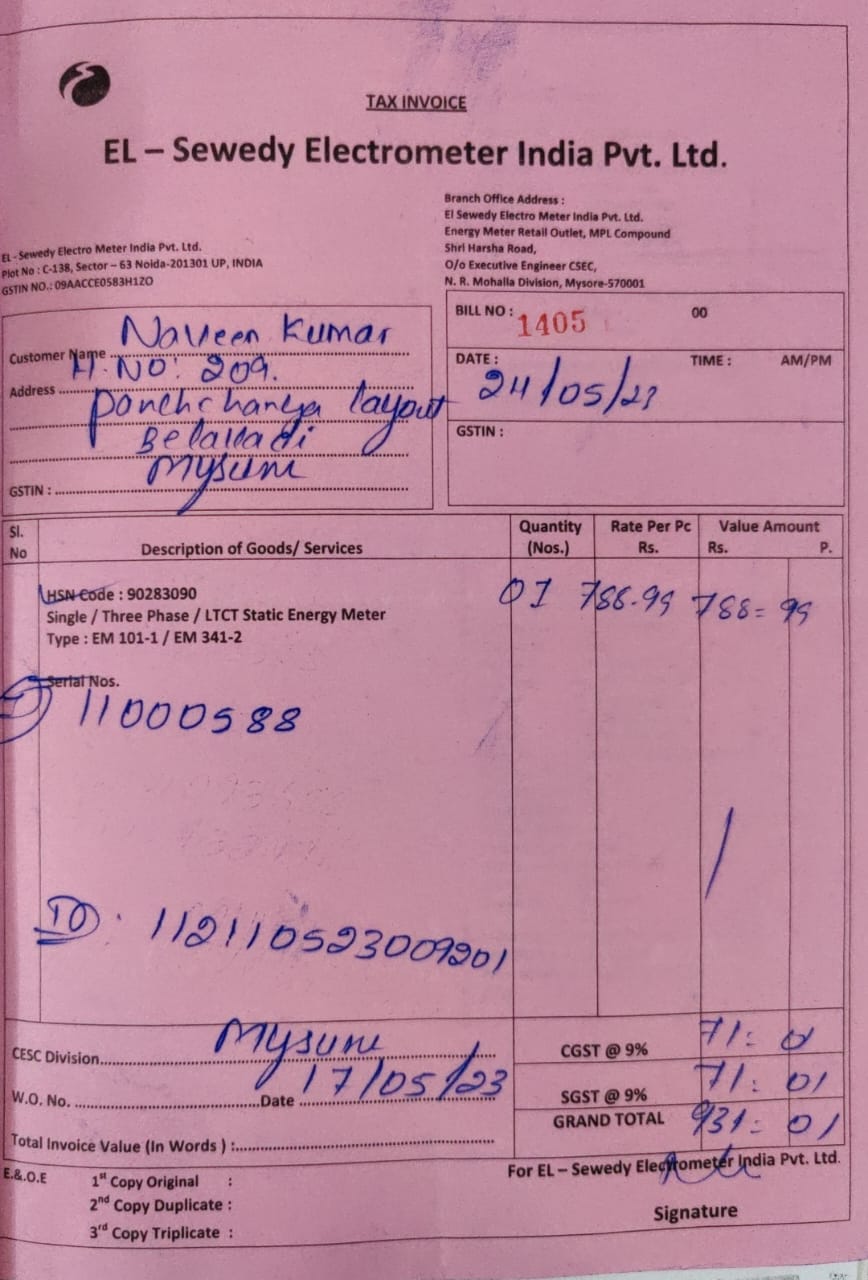 TAX INVOICE
EL – Sewedy Electrometer India Pvt. Ltd.
EL - Sewedy Electro Meter India Pvt. Ltd.
Plot No : C-138, Sector – 63 Noida-201301 UP, INDIA
GSTIN NO.: 09AACCE0583H1ZO
Branch Office Address :
El Sewedy Electro Meter India Pvt. Ltd.
Energy Meter Retail Outlet, MPL Compound
Shri Harsha Road,
O/o Executive Engineer CSEC,
N. R. Mohalla Division, Mysore-570001
Customer Name Naveen Kumar
Address H.NO: 209.
layout
GSTIN :
BILL NO : 1405 00
DATE : 24/05/23 TIME : AM/PM
GSTIN :
Sl. No Description of Goods/ Services Quantity (Nos.) Rate Per Pc Rs. Value Amount Rs. P.
HSN Code : 90283090 01 788.99 788=99
Single / Three Phase / LTCT Static Energy Meter
Type : EM 101-1 / EM 341-2
Serial Nos.
11000588
ID: 112110523009201
CESC Division
W.O. No. Date 17/05/23
Total Invoice Value (In Words ) :
CGST @ 9% 71:
SGST @ 9% 71: 01
GRAND TOTAL 931: 01
E.&.O.E
1st Copy Original :
2nd Copy Duplicate :
3rd Copy Triplicate :
For EL – Sewedy Electrometer India Pvt. Ltd.
Signature